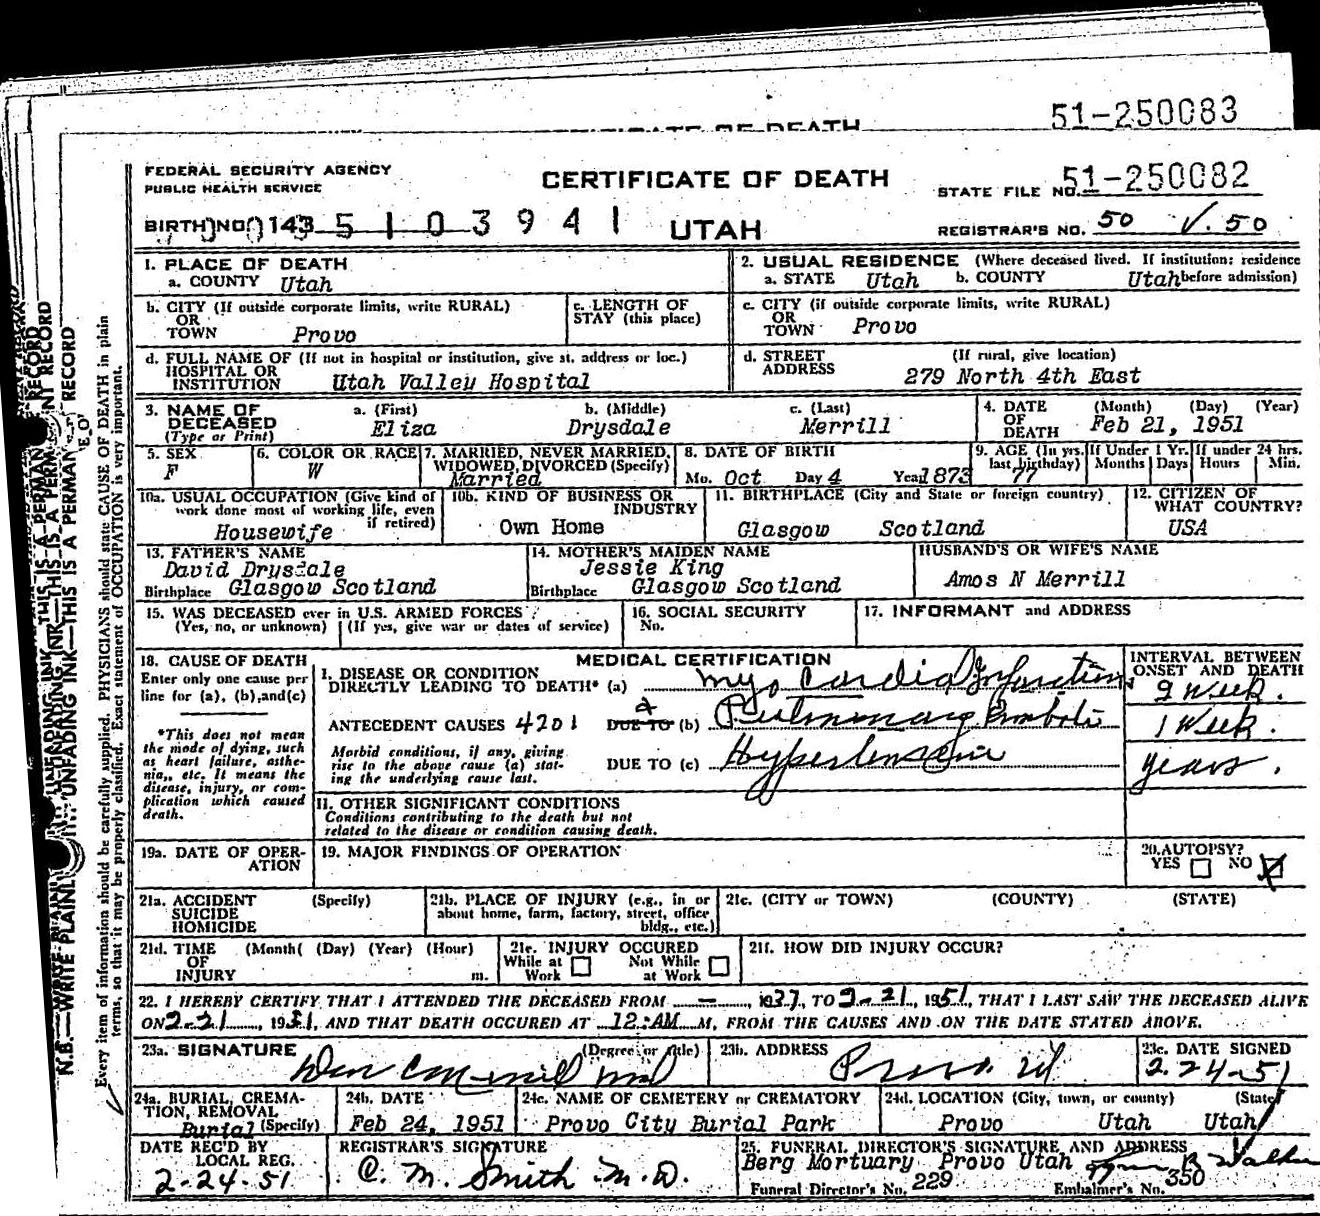 51-250083
CERTIFICATE OF DEATH
FEDERAL SECURITY AGENCY
PUBLIC HEALTH SERVICE
CERTIFICATE OF DEATH
STATE FILE NO. 51-250082
BIRTH NO. 143 5 1 0 3 9 4 1
UTAH
REGISTRAR'S NO. 50 V. 50
1. PLACE OF DEATH
a. COUNTY Utah
2. USUAL RESIDENCE (Where deceased lived. If institution: residence
a. STATE Utah b. COUNTY Utah before admission)
b. CITY (If outside corporate limits, write RURAL)
OR
TOWN Provo
c. LENGTH OF
STAY (this place)
c. CITY (if outside corporate limits, write RURAL)
OR
TOWN Provo
d. FULL NAME OF (If not in hospital or institution, give st. address or loc.)
HOSPITAL OR
INSTITUTION Utah Valley Hospital
d. STREET (If rural, give location)
ADDRESS 279 North 4th East
3. NAME OF DECEASED (Type or Print)
a. (First) b. (Middle) c. (Last)
Eliza Drysdale Merrill
4. DATE OF DEATH (Month) (Day) (Year)
Feb 21, 1951
5. SEX
F
6. COLOR OR RACE
W
7. MARRIED, NEVER MARRIED,
WIDOWED, DIVORCED (Specify)
Married
8. DATE OF BIRTH
Mo. Oct Day 4 Year 1873
9. AGE (In yrs. last birthday)
77
If Under 1 Yr.
Months Days
If under 24 hrs.
Hours Min.
10a. USUAL OCCUPATION (Give kind of
work done most of working life, even
if retired)
Housewife
10b. KIND OF BUSINESS OR
INDUSTRY
Own Home
11. BIRTHPLACE (City and State or foreign country)
Glasgow Scotland
12. CITIZEN OF
WHAT COUNTRY?
USA
13. FATHER'S NAME
David Drysdale
Birthplace Glasgow Scotland
14. MOTHER'S MAIDEN NAME
Jessie King
Birthplace Glasgow Scotland
HUSBAND'S OR WIFE'S NAME
Amos N Merrill
15. WAS DECEASED ever in U.S. ARMED FORCES?
(Yes, no, or unknown) (If yes, give war or dates of service)
16. SOCIAL SECURITY
No.
17. INFORMANT and ADDRESS
18. CAUSE OF DEATH
Enter only one cause per
line for (a), (b), and (c)
*This does not mean
the mode of dying, such
as heart failure, asthe-
nia, etc. It means the
disease, injury, or com-
plication which caused
death.
MEDICAL CERTIFICATION
I. DISEASE OR CONDITION
DIRECTLY LEADING TO DEATH* (a) Myocardio Infarction
ANTECEDENT CAUSES 4201 DUE TO (b) Pulmonary Emboli
Morbid conditions, if any, giving
rise to the above cause (a) stat-
ing the underlying cause last.
DUE TO (c) Hypertension
INTERVAL BETWEEN
ONSET AND DEATH
2 Week.
1 Week.
years.
II. OTHER SIGNIFICANT CONDITIONS
Conditions contributing to the death but not
related to the disease or condition causing death.
19a. DATE OF OPER-
ATION
19. MAJOR FINDINGS OF OPERATION
20. AUTOPSY?
YES NO
21a. ACCIDENT (Specify)
SUICIDE
HOMICIDE
21b. PLACE OF INJURY (e.g., in or
about home, farm, factory, street, office
bldg., etc.)
21c. (CITY or TOWN) (COUNTY) (STATE)
21d. TIME (Month( (Day) (Year) (Hour)
OF
INJURY m.
21e. INJURY OCCURED
While at Work Not While at Work
21f. HOW DID INJURY OCCUR?
22. I HEREBY CERTIFY THAT I ATTENDED THE DECEASED FROM —, 1937, TO 2-21, 1951, THAT I LAST SAW THE DECEASED ALIVE
ON 2-21, 1951, AND THAT DEATH OCCURED AT 12:AM M, FROM THE CAUSES AND ON THE DATE STATED ABOVE.
23a. SIGNATURE (Degree or title)
Merrill MD
23b. ADDRESS
Provo. Ut
23c. DATE SIGNED
2.24-51
24a. BURIAL, CREMA-
TION, REMOVAL
Burial (Specify)
24b. DATE
Feb 24, 1951
24c. NAME OF CEMETERY or CREMATORY
Provo City Burial Park
24d. LOCATION (City, town, or county) (State)
Provo Utah Utah
DATE REC'D BY
LOCAL REG.
2-24-51
REGISTRAR'S SIGNATURE
C. M. Smith M.D.
25. FUNERAL DIRECTOR'S SIGNATURE AND ADDRESS
Berg Mortuary Provo Utah
Funeral Director's No. 229
Embalmer's No. 350
N.B.—WRITE PLAINLY WITH UNFADING INK—THIS IS A PERMANENT RECORD
Every item of information should be carefully supplied. PHYSICIANS should state CAUSE OF DEATH in plain
terms, so that it may be properly classified. Exact statement of OCCUPATION is very important.